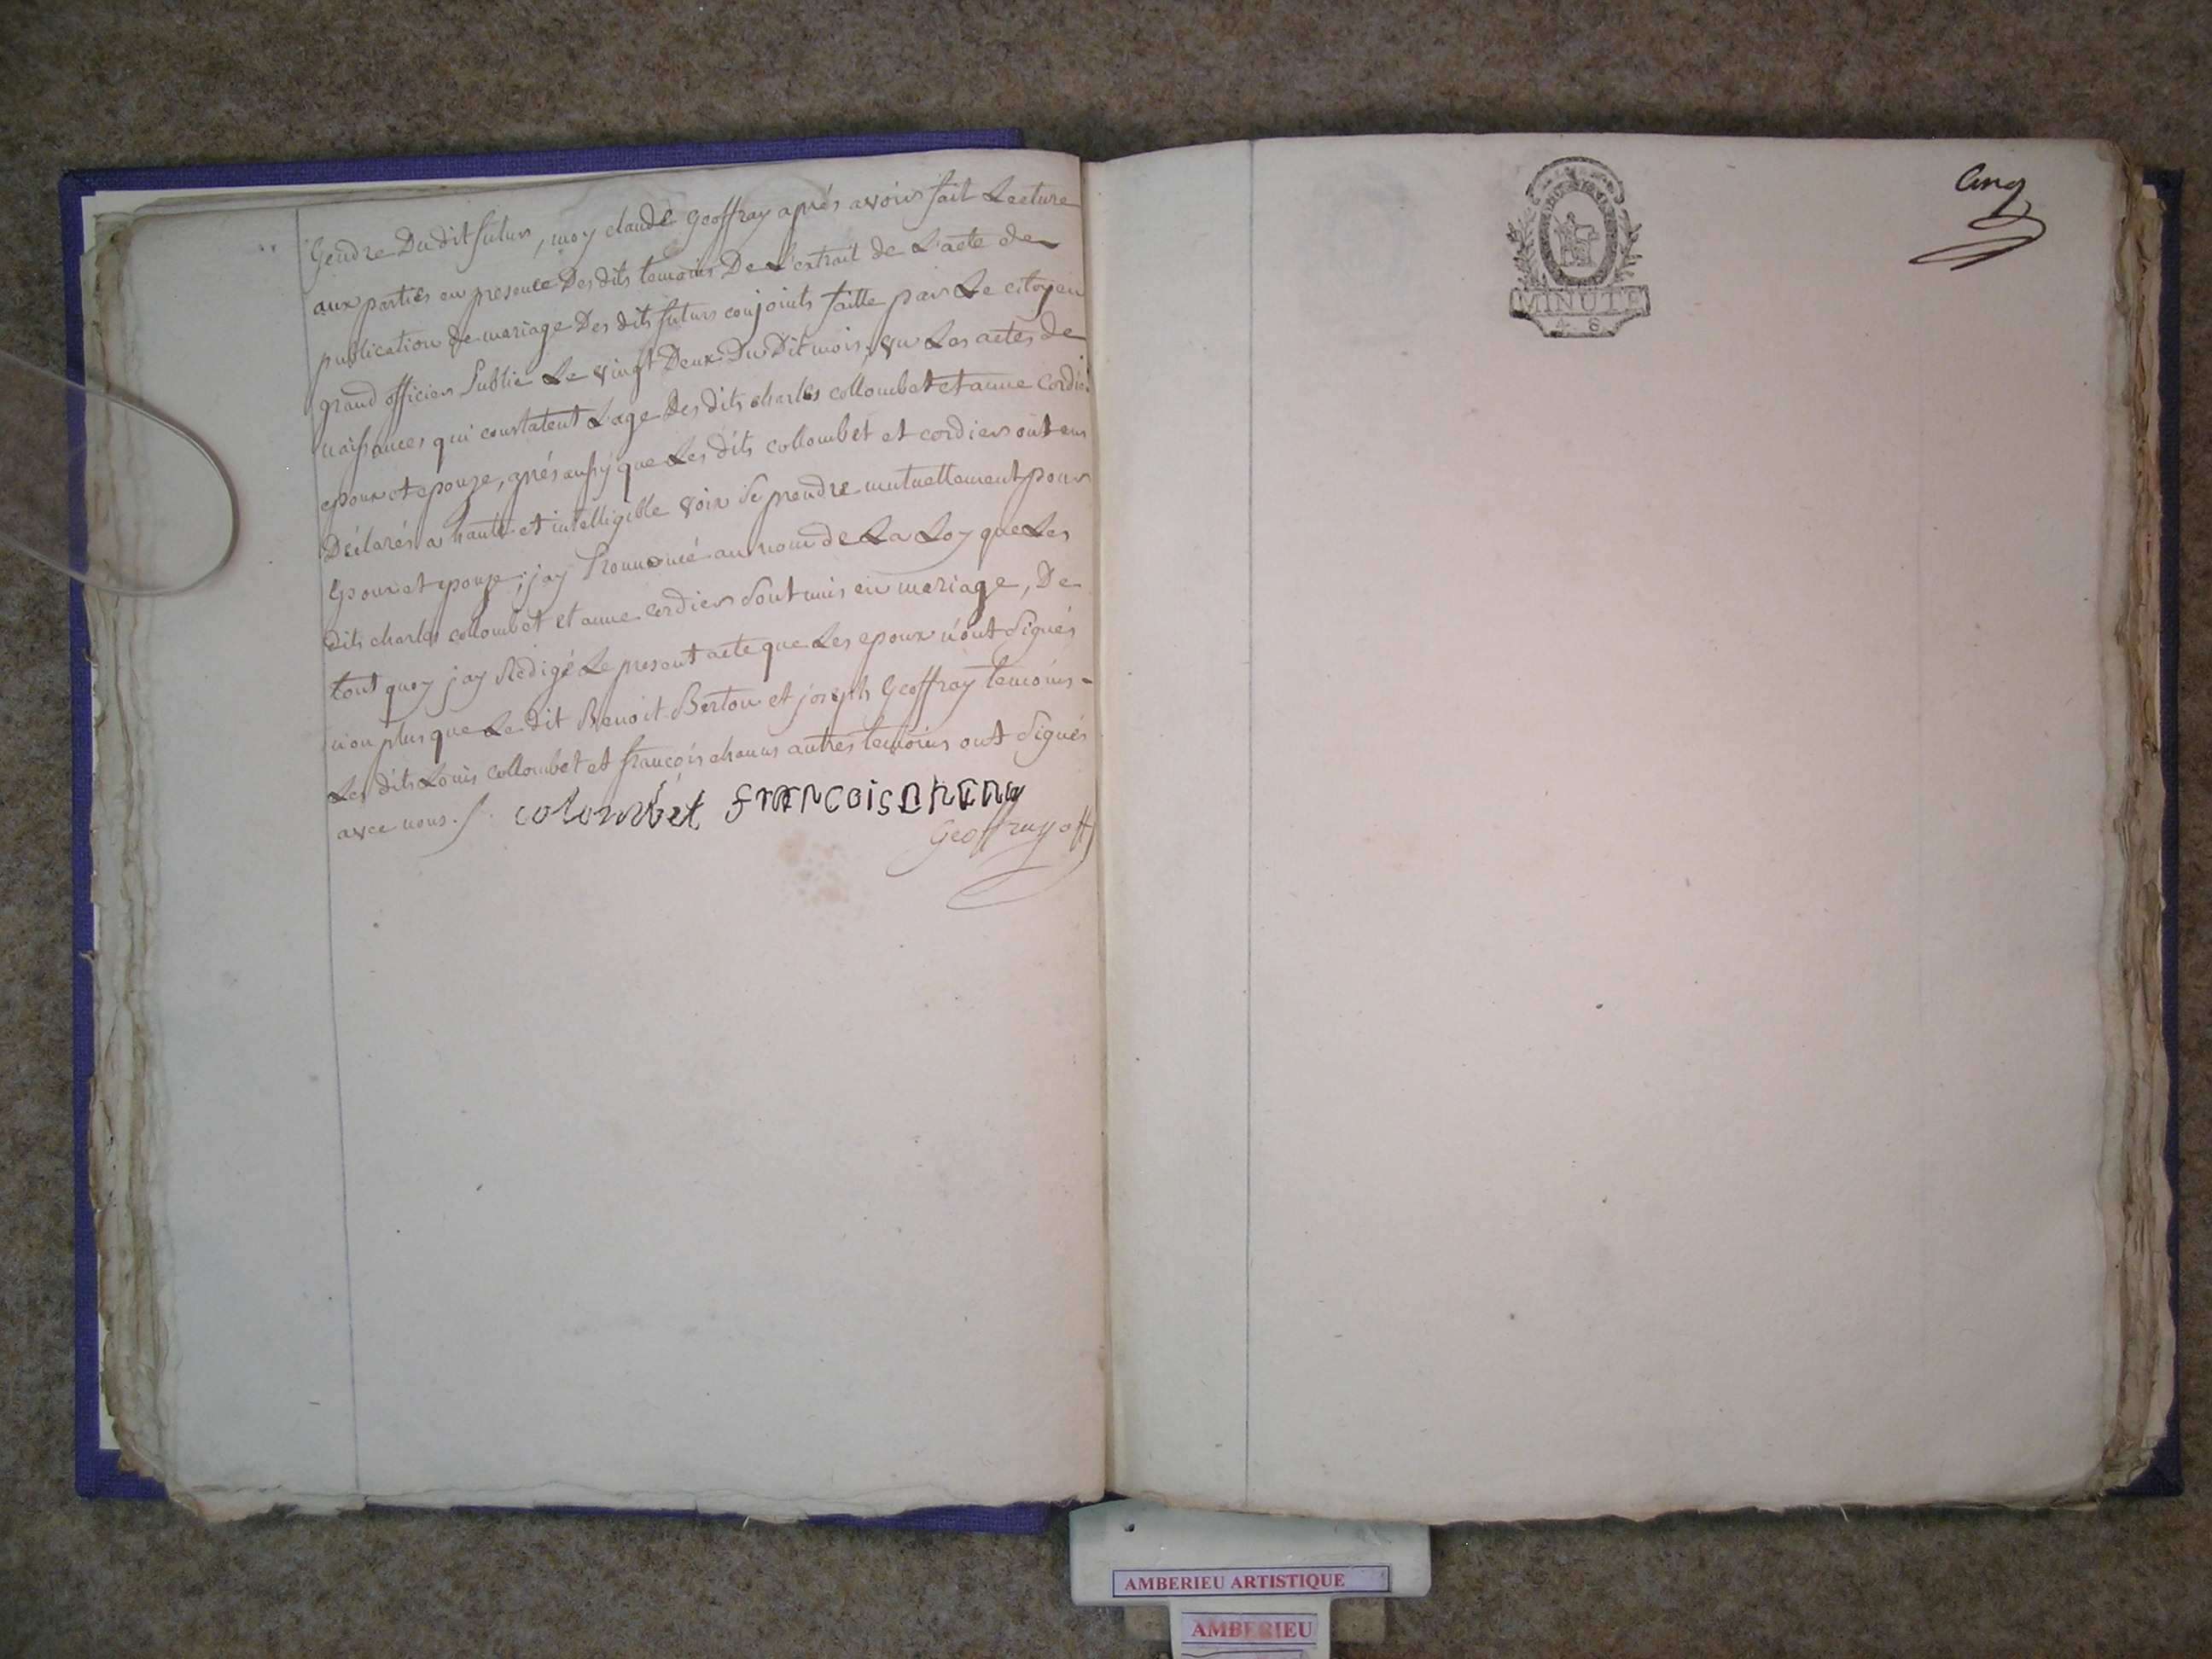 Gendre Dudit futur, moy claude Geoffray aprés avoir fait Lecture
aux parties en presence Des dits temoins De L'extrait de L'acte de
publication de mariage Des dits futurs conjoints faitte par Le citoyen
grand officier Public Le vingt Deux Du Dit mois, vu Les actes de
naissances qui constatent L'age Des dits charles collombet et anne Cordier
epoux et epouze, aprés aussy que Les dits collombet et cordier ont eu
Déclarés a haute et intelligible voix se prendre mutuellement pour
Epoux et epouze, jay Prononcé au nom de La Loy que Les
dits charles collombet et anne cordier sont unis en mariage, De
tout quoy jay Rédigé Le present acte que Les epoux n'ont Signés
non plus que Le dit Benoit Berton et joseph Geoffray temoins -
Les dits Louis collombet et françois autres temoins ont Signés
avec nous ./.
colombet francois
Geoffray off
MINUTE
4. S.
Cinq
AMBERIEU ARTISTIQUE
AMBERIEU